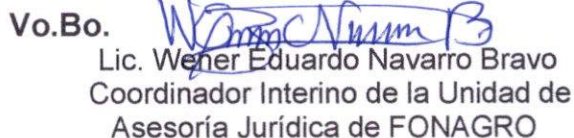 Vo.Bo.
Lic. Wener Eduardo Navarro Bravo
Coordinador Interino de la Unidad de
Asesoría Jurídica de FONAGRO